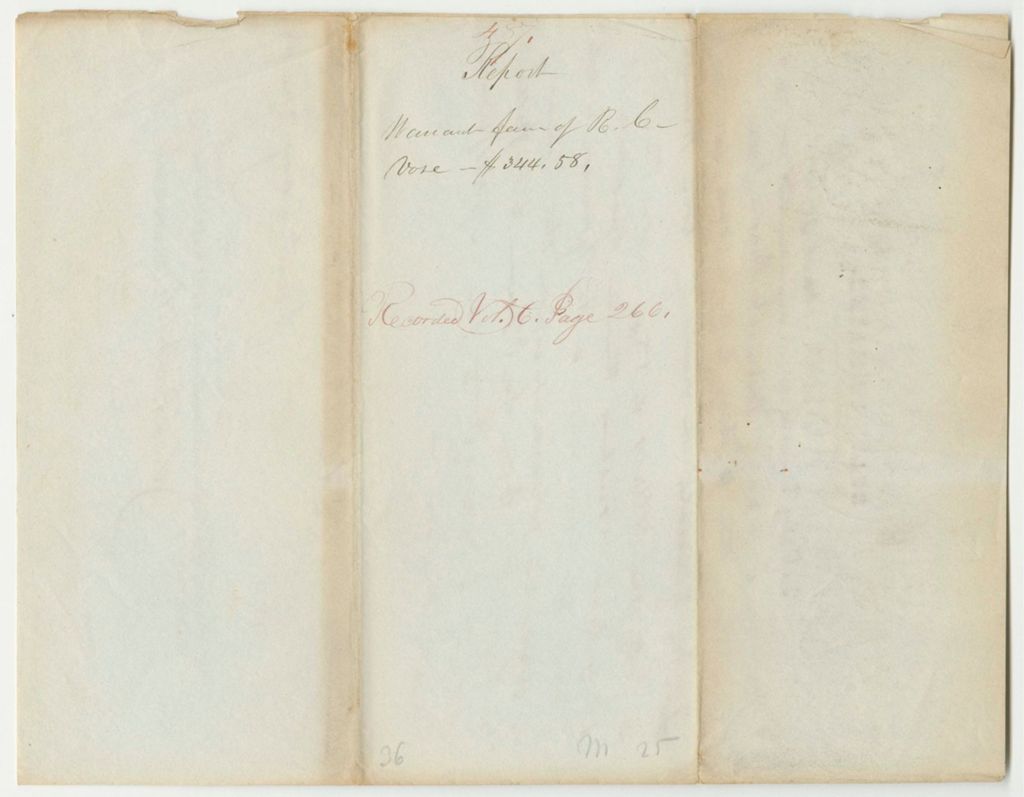 Report
Warrant favr of R. C.
Vose - $344.58.
Recorded Vol. 6. Page 266.
36 M 25